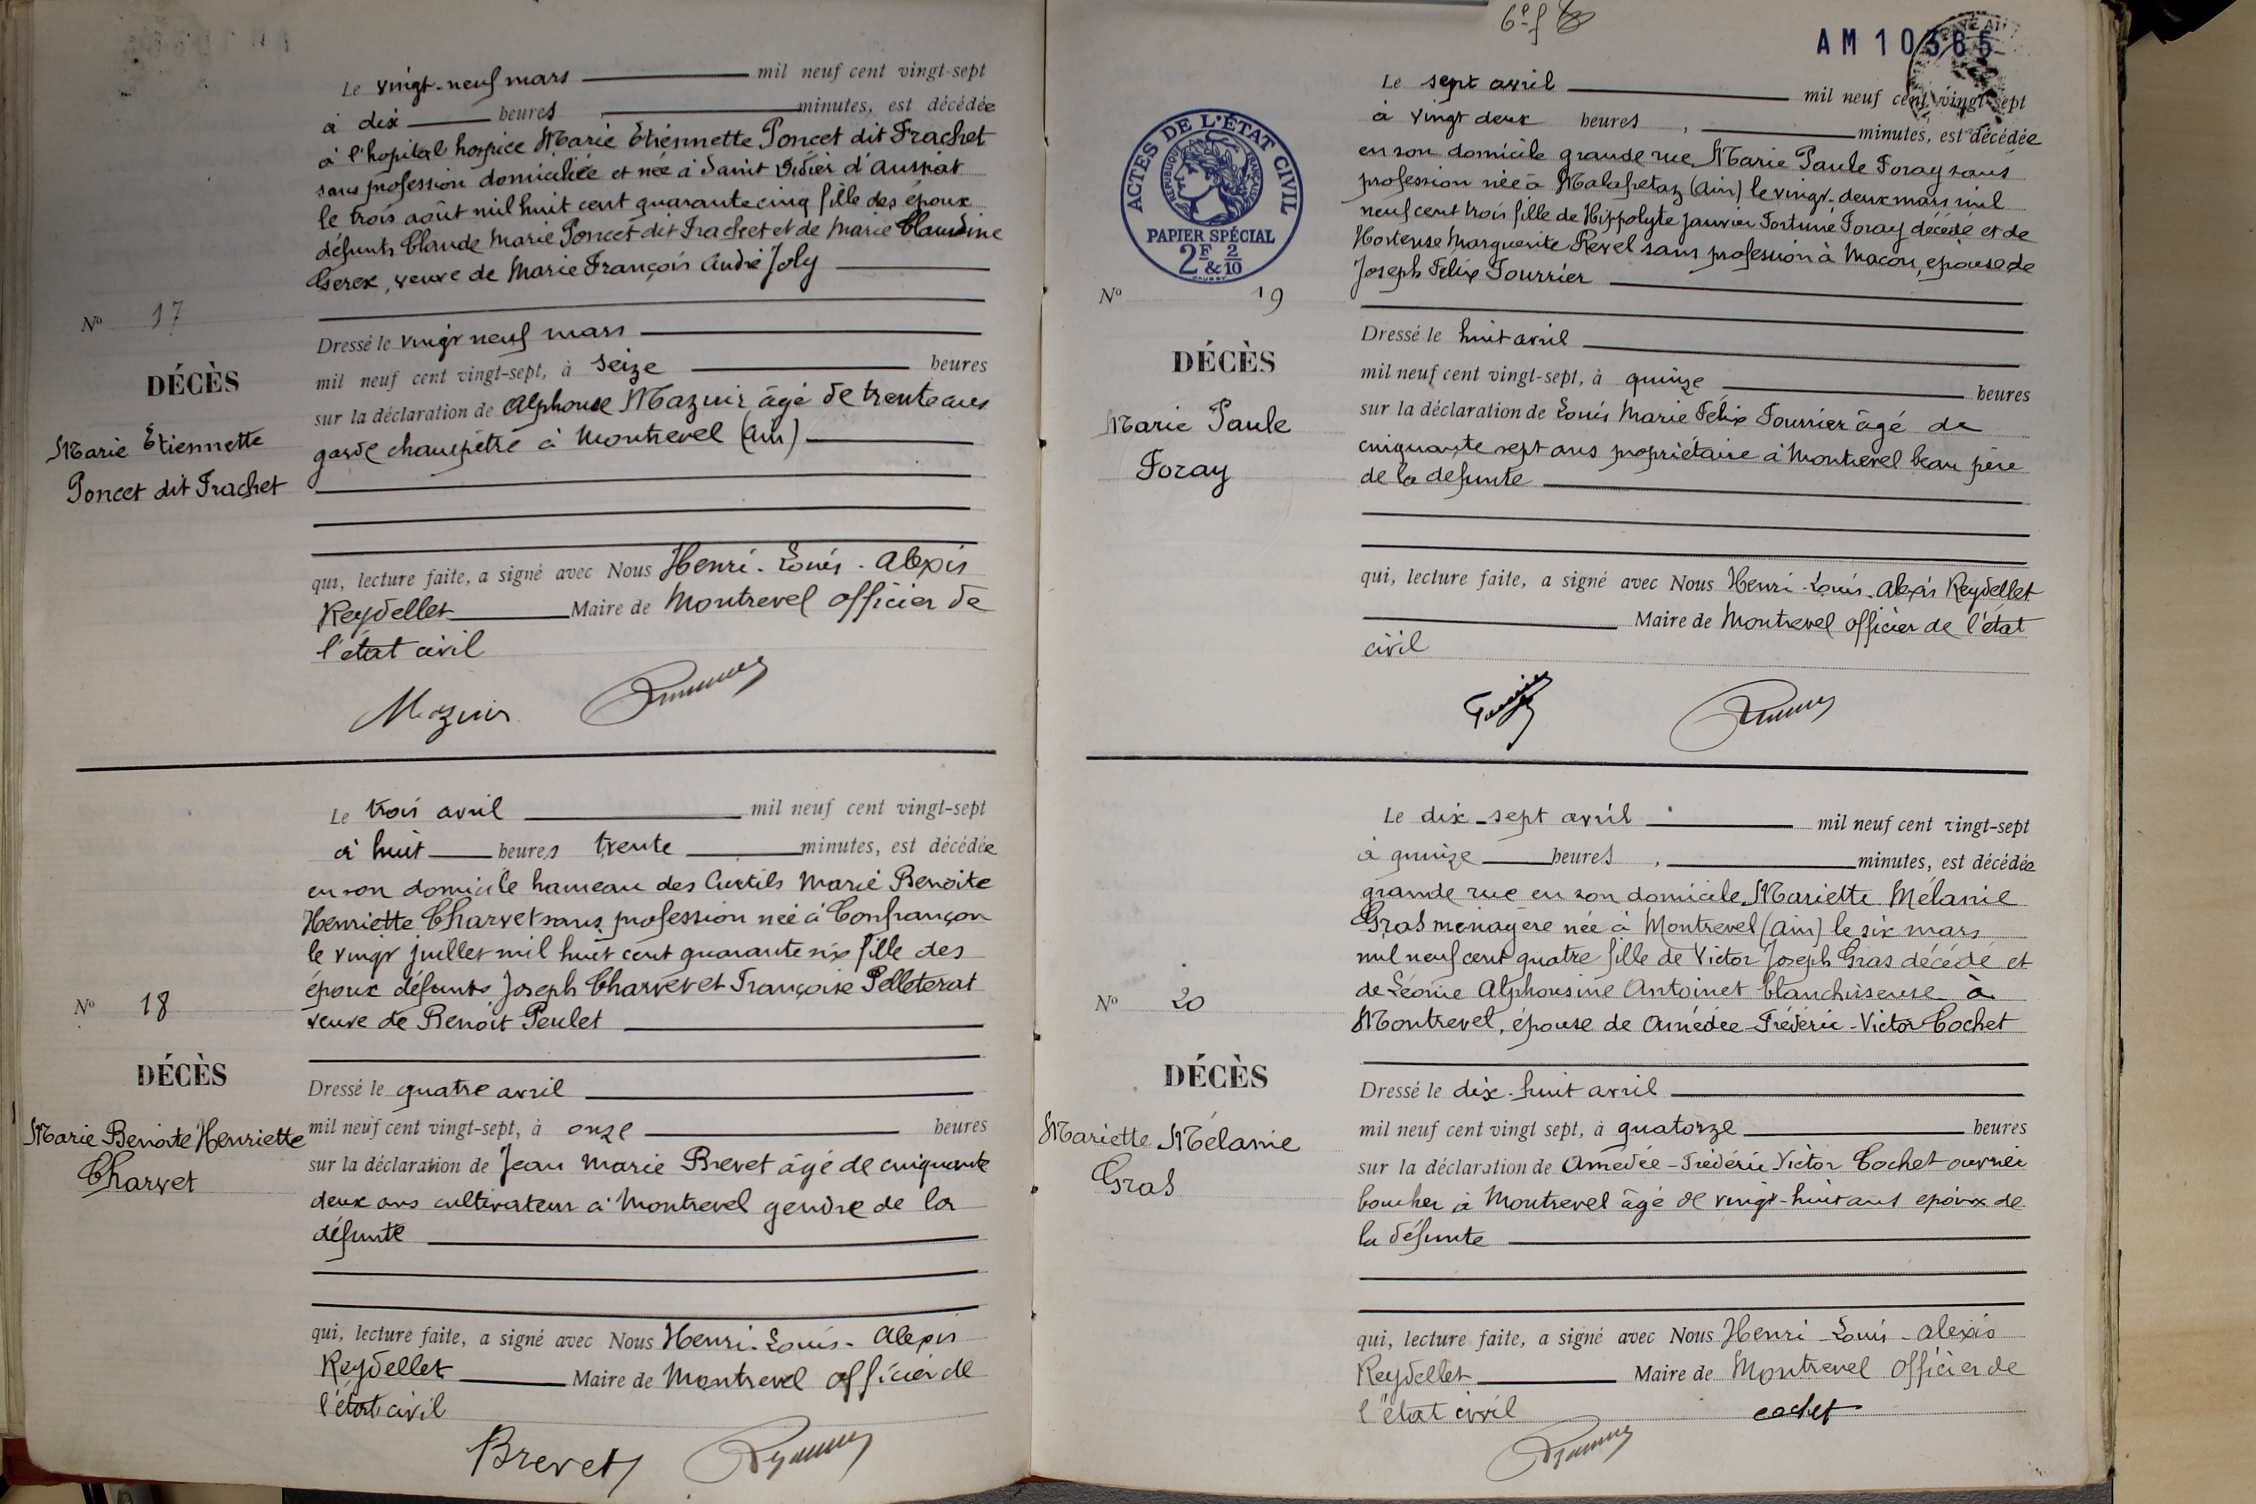 Le vingt-neuf mars mil neuf cent vingt-sept
à dix heures minutes, est décédée
à l'hopital hospice Marie Etiennette Poncet dit Frachet
sans profession domiciliée et née à Saint Didier d'Aussiat
le trois août mil huit cent quarante cinq fille des époux
défunts Claude Marie Poncet dit Frachet et de Marie Claudine
Gerex, veuve de Marie François André Joly
Nº 17
DÉCÈS
Marie Etiennette
Poncet dit Frachet
Dressé le vingt neuf mars
mil neuf cent vingt-sept, à seize heures
sur la déclaration de Alphonse Mazuir âgé de trente ans
garde champêtre à Montrevel (Ain)
qui, lecture faite, a signé avec Nous Henri-Louis-Alexis
Reydellet Maire de Montrevel officier de
l'état civil
Mazuir
Le trois avril mil neuf cent vingt-sept
à huit heures trente minutes, est décédée
en son domicile hameau des Curtils Marie Benoite
Henriette Charvet sans profession née à Confrançon
le vingt juillet mil huit cent quarante six fille des
époux défunts Joseph Charvet et Françoise Pelleterat
veuve de Benoit Peulet
Nº 18
DÉCÈS
Marie Benoite Henriette
Charvet
Dressé le quatre avril
mil neuf cent vingt-sept, à onze heures
sur la déclaration de Jean Marie Brevet âgé de cinquante
deux ans cultivateur à Montrevel gendre de la
défunte
qui, lecture faite, a signé avec Nous Henri-Louis-Alexis
Reydellet Maire de Montrevel officier de
l'état civil
Brevet
6e f
AM 10365
ACTES DE L'ÉTAT CIVIL
RÉPUBLIQUE FRANÇAISE
PAPIER SPÉCIAL
2F & 2/10
Le sept avril mil neuf cent vingt-sept
à vingt deux heures, minutes, est décédée
en son domicile grande rue, Marie Paule Foray sans
profession née à Malafretaz (Ain) le vingt-deux mars mil
neuf cent trois fille de Hippolyte Janvier Fortuné Foray décédé et de
Hortense Marguerite Revel sans profession à Macon, épouse de
Joseph Félix Fourrier
Nº 19
DÉCÈS
Marie Paule
Foray
Dressé le huit avril
mil neuf cent vingt-sept, à quinze heures
sur la déclaration de Louis Marie Félix Fourrier âgé de
cinquante sept ans propriétaire à Montrevel beau père
de la defunte
qui, lecture faite, a signé avec Nous Henri-Louis-Alexis Reydellet
Maire de Montrevel officier de l'état
civil
Le dix-sept avril mil neuf cent vingt-sept
à quinze heures, minutes, est décédée
grande rue en son domicile, Mariette Mélanie
Gras ménagère née à Montrevel (Ain) le six mars
mil neuf cent quatre fille de Victor Joseph Gras décédé et
de Léonie Alphonsine Antoinet blanchisseuse à
Montrevel, épouse de Amédée-Frédéric-Victor Cochet
Nº 20
DÉCÈS
Mariette Mélanie
Gras
Dressé le dix-huit avril
mil neuf cent vingt sept, à quatorze heures
sur la déclaration de Amédée-Frédéric Victor Cochet ouvrier
boucher à Montrevel âgé de vingt-huit ans époux de
la défunte
qui, lecture faite, a signé avec Nous Henri-Louis-Alexis
Reydellet Maire de Montrevel officier de
l'état civil
cochet